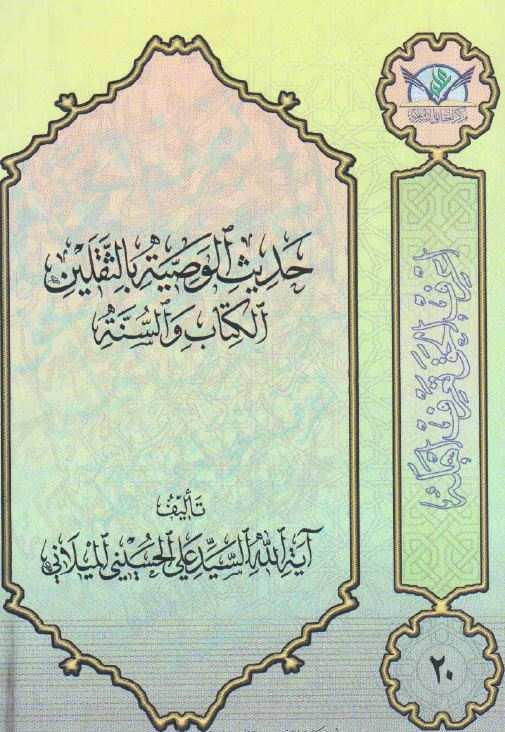 حَدِيثُ الْوَصِيَّةِ بِالثَّقَلَيْنِ
الْكِتَابِ وَالسُّنَّةِ
تَأْلِيفُ
آيَةُ اللهِ السَّيِّدِ عَلِي الْحُسَيْنِي الْمِيلَانِي
مركز الحقائق الإسلامية
اعرف الحق تعرف أهله
٢٠